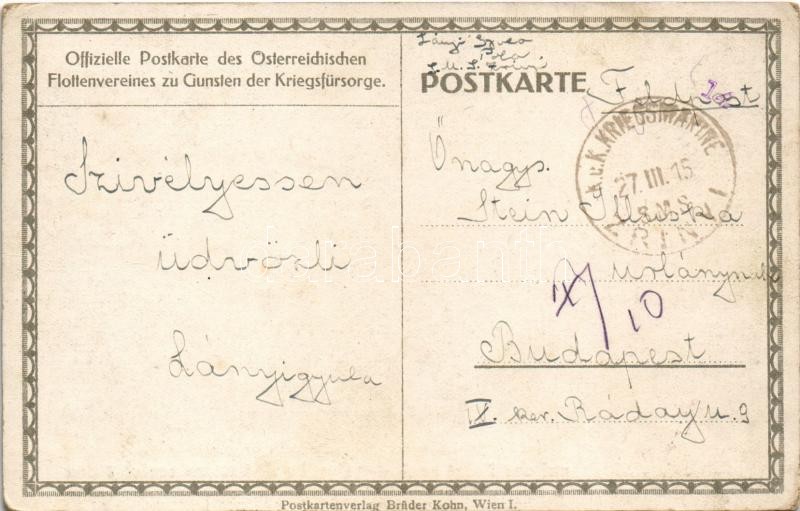 Offizielle Postkarte des Österreichischen
Flottenvereines zu Gunsten der Kriegsfürsorge.
Szivélyessen
üdvözli
Lányigyula
Pola
POSTKARTE
Feldpost
K.u.K. KRIEGSMARINE
27.III.15
S.M.S.
ZRINYI
Őnagys.
Stein Iluska
urlánynak
IX/10
Budapest
IX. ker. Ráday u. 9
Postkartenverlag Brüder Kohn, Wien I.